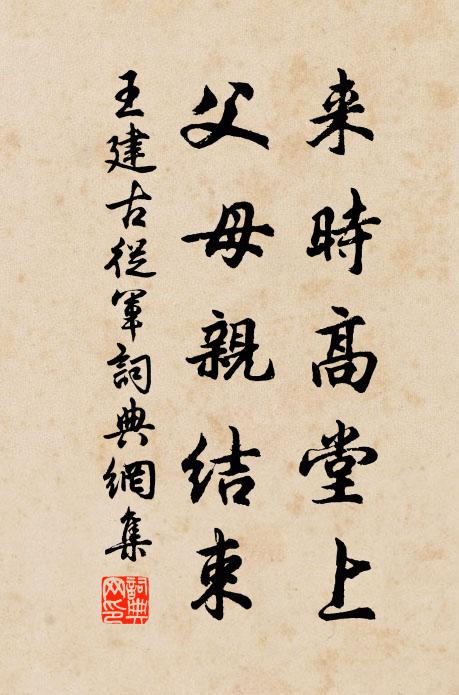 来時高堂上
父母親結束
王建古從軍詞典網集
詞典網印